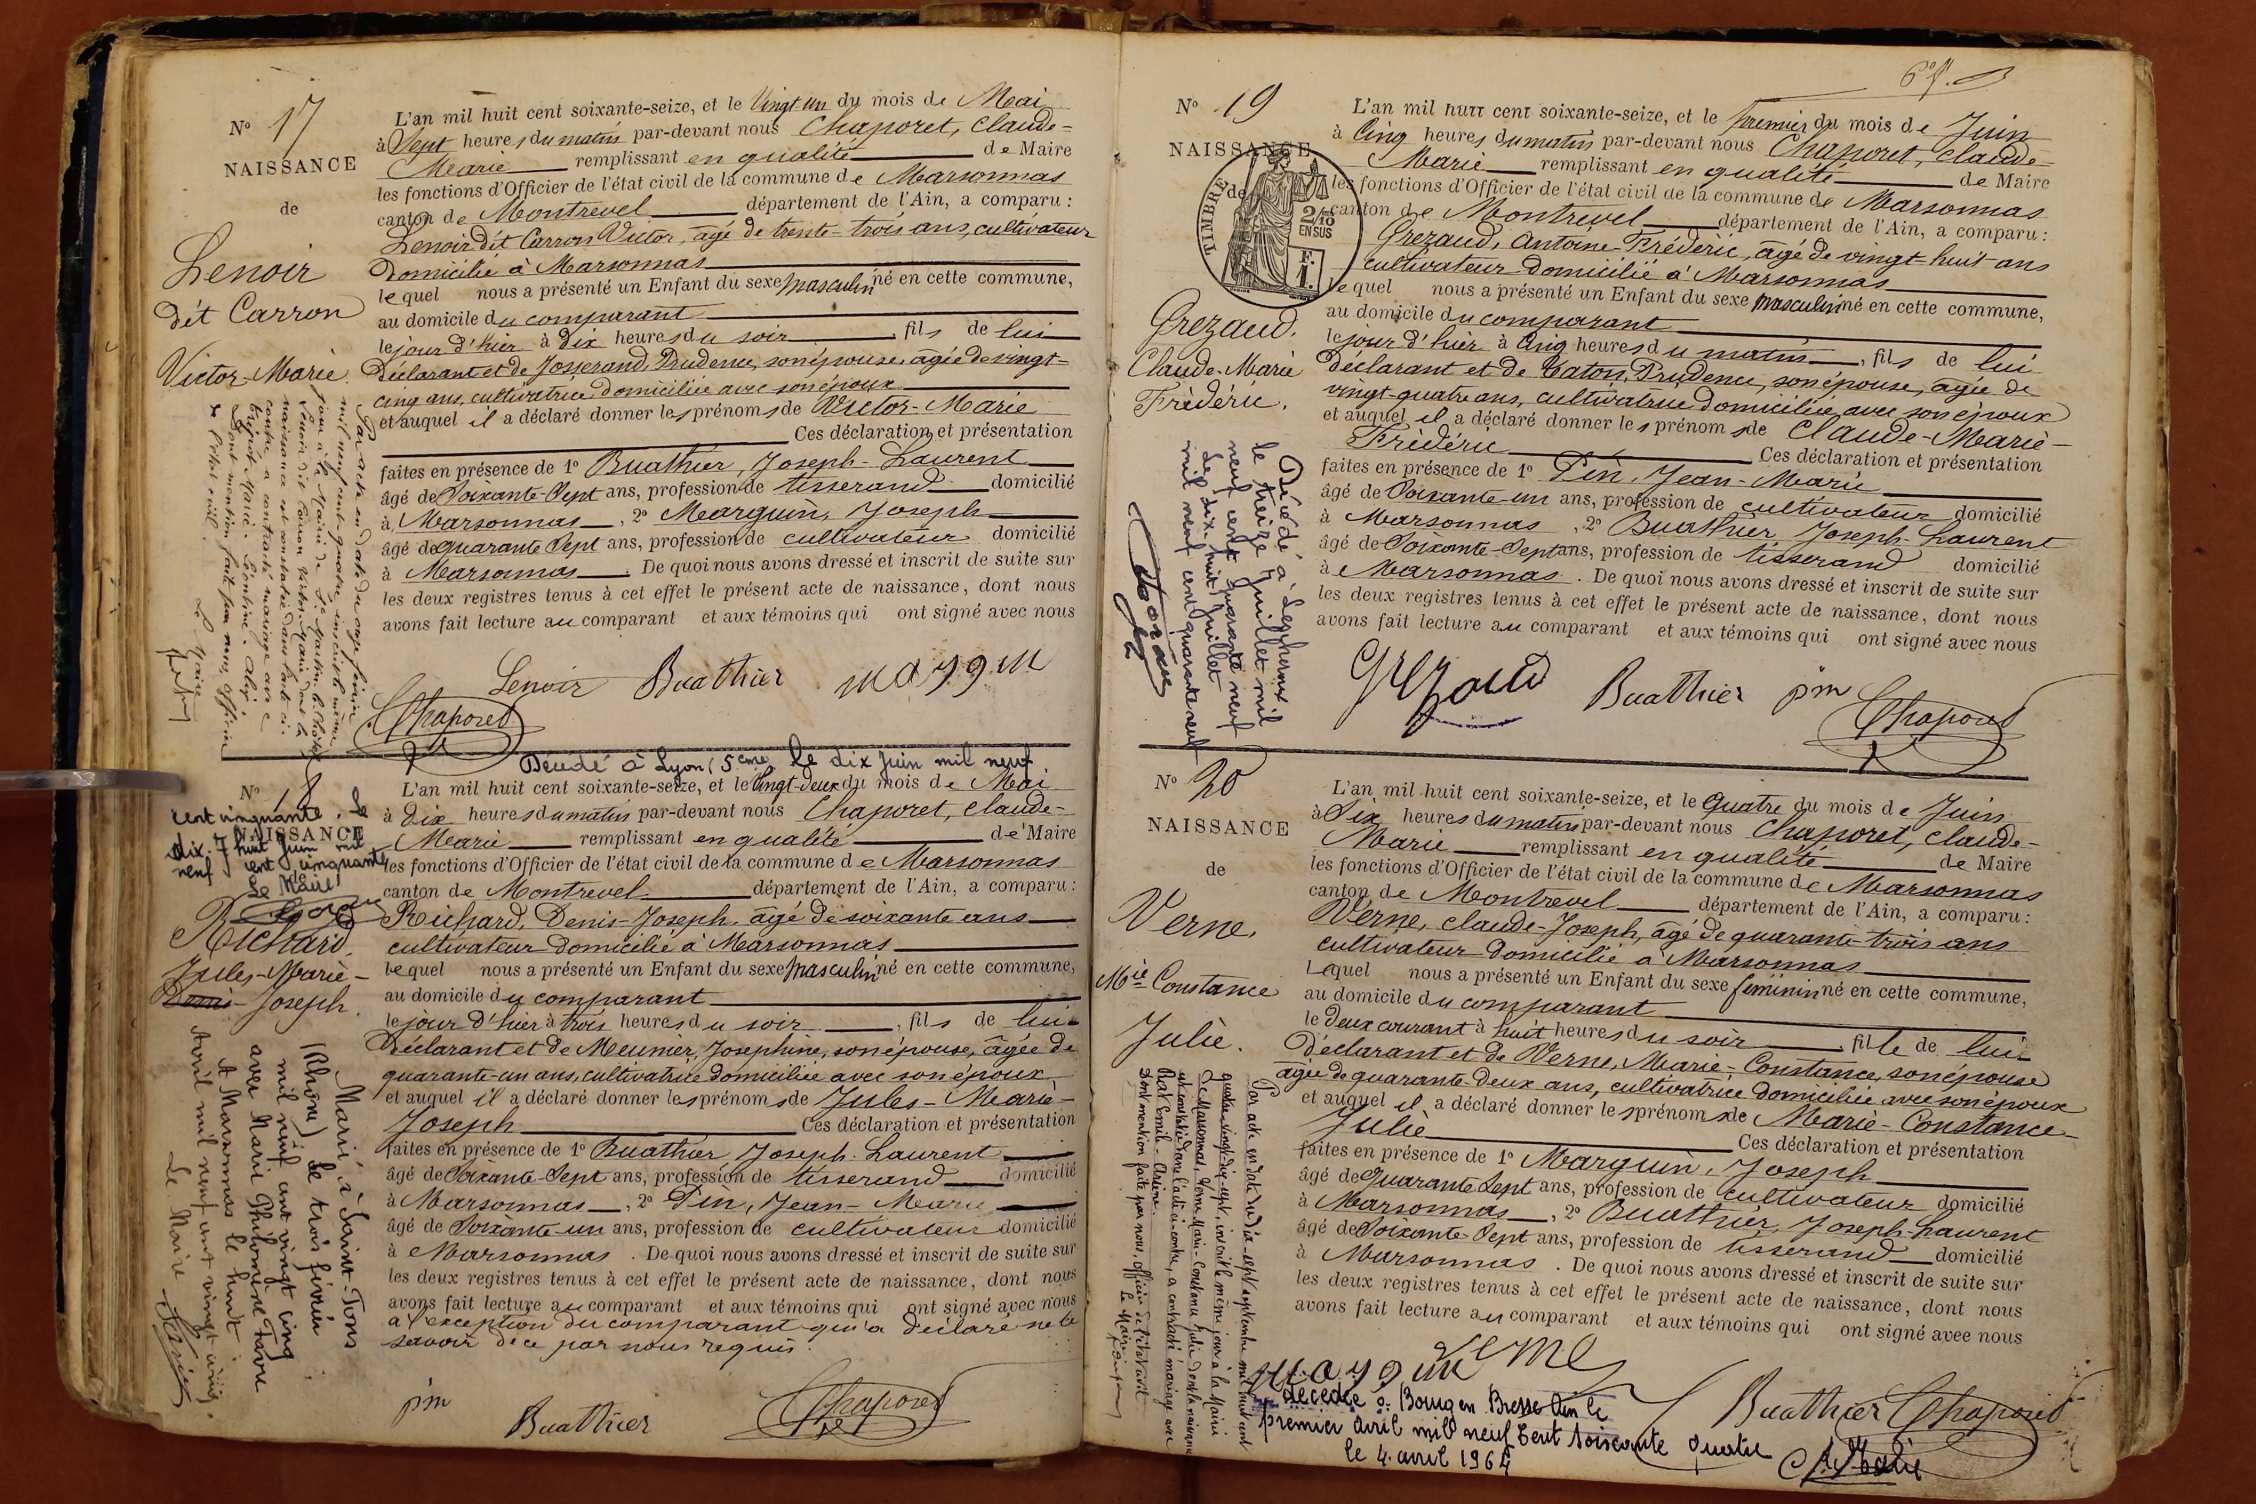 N° 17
NAISSANCE
de
Lenoir
dét Carron
Victor-Marie.
L'an mil huit cent soixante-seize, et le Vingt un du mois de Mai
à Sept heures du matin par-devant nous Chaporet, Claude-
Marie remplissant en qualité de Maire
les fonctions d'Officier de l'état civil de la commune de Marsonnas
canton de Montrevel département de l'Ain, a comparu :
Lenoir dét Carron Victor, âgé de trente-trois ans, cultivateur
domicilié à Marsonnas
lequel nous a présenté un Enfant du sexe masculin né en cette commune,
au domicile du comparant
le jour d'hier à dix heures du soir, fils de lui
Déclarant et de Josserand, Prudence, son épouse, agée de vingt-
cinq ans, cultivatrice domiciliée avec son époux
et auquel il a déclaré donner les prénoms de Victor-Marie
Ces déclaration et présentation
faites en présence de 1° Buathier, Joseph-Laurent
âgé de Soixante-Sept ans, profession de tisserand domicilié
à Marsonnas, 2° Marguin, Joseph
âgé de quarante Sept ans, profession de cultivateur domicilié
à Marsonnas. De quoi nous avons dressé et inscrit de suite sur
les deux registres tenus à cet effet le présent acte de naissance, dont nous
avons fait lecture au comparant et aux témoins qui ont signé avec nous
Par acte en date du onze février
mil neuf cent quatre, inscrit le même
jour à la Mairie de
Lenoir dit Carron Victor-Marie dont la
naissance est constatée dans l'acte ci-
contre a contracté mariage avec
Marie
Dont mention faite par nous, officier
de l'état civil.
Le Maire
Lenoir Buathier marguin
Chaporet
Décédé à Lyon (5eme) le dix juin mil neuf
cent cinquante. Le
dix-huit juin mil
neuf cent cinquante
Le Maire
N° 18
NAISSANCE
de
Richard.
Jules-Marie-
Denis-Joseph.
L'an mil huit cent soixante-seize, et le Vingt-deux du mois de Mai
à dix heures du matin par-devant nous Chaporet, Claude-
Marie remplissant en qualité de Maire
les fonctions d'Officier de l'état civil de la commune de Marsonnas
canton de Montrevel département de l'Ain, a comparu :
Richard, Denis-Joseph, âgé de soixante ans
cultivateur domicilié à Marsonnas
lequel nous a présenté un Enfant du sexe masculin né en cette commune,
au domicile du comparant
le jour d'hier à trois heures du soir, fils de lui
Déclarant et de Meunier, Josephine, son épouse, âgée de
quarante-un ans, cultivatrice domiciliée avec son époux
et auquel il a déclaré donner les prénoms de Jules-Marie-
Joseph Ces déclaration et présentation
faites en présence de 1° Buathier Joseph-Laurent
âgé de Soixante-Sept ans, profession de tisserand domicilié
à Marsonnas, 2° Pin, Jean-Marie
âgé de Soixante-un ans, profession de cultivateur domicilié
à Marsonnas. De quoi nous avons dressé et inscrit de suite sur
les deux registres tenus à cet effet le présent acte de naissance, dont nous
avons fait lecture au comparant et aux témoins qui ont signé avec nous
a l'exception du comparant qui a déclaré ne le
savoir de ce par nous requis.
Marié à Saint-Fons
(Rhône) le trois février
mil neuf cent vingt cinq
avec Marie Philomène Favre
A Marsonnas le huit
Avril mil neuf cent vingt cinq.
Le Maire
pin Buathier Chaporet
N° 19
NAISSANCE
de
TIMBRE
2/10
EN SUS
F.
1.
Grezaud.
Claude-Marie
Frédéric.
L'an mil huit cent soixante-seize, et le premier du mois de Juin
à Cinq heures du matin par-devant nous Chaporet, Claude-
Marie remplissant en qualité de Maire
les fonctions d'Officier de l'état civil de la commune de Marsonnas
canton de Montrevel département de l'Ain, a comparu :
Grezaud, Antoine-Frédéric, âgé de vingt-huit ans
cultivateur domicilié à Marsonnas
lequel nous a présenté un Enfant du sexe masculin né en cette commune,
au domicile du comparant
le jour d'hier à Cinq heures du matin, fils de lui
Déclarant et de Caton, Prudence, son épouse, agée de
vingt-quatre ans, cultivatrice domiciliée avec son époux
et auquel il a déclaré donner les prénoms de Claude-Marie-
Frédéric Ces déclaration et présentation
faites en présence de 1° Pin, Jean-Marie
âgé de Soixante-un ans, profession de cultivateur domicilié
à Marsonnas, 2° Buathier, Joseph-Laurent
âgé de Soixante-Sept ans, profession de tisserand domicilié
à Marsonnas. De quoi nous avons dressé et inscrit de suite sur
les deux registres tenus à cet effet le présent acte de naissance, dont nous
avons fait lecture au comparant et aux témoins qui ont signé avec nous
Décédé à Lescheroux
le treize juillet mil
neuf cent quarante neuf
Le dix-huit juillet
mil neuf cent quarante neuf
Grezaud Buathier pin
Chaporet
N° 20
NAISSANCE
de
Verne,
Mie Constance
Julie.
L'an mil huit cent soixante-seize, et le Quatre du mois de Juin
à Six heures du matin par-devant nous Chaporet, Claude-
Marie remplissant en qualité de Maire
les fonctions d'Officier de l'état civil de la commune de Marsonnas
canton de Montrevel département de l'Ain, a comparu :
Verne, Claude-Joseph, âgé de quarante-trois ans
cultivateur domicilié à Marsonnas
Lequel nous a présenté un Enfant du sexe féminin né en cette commune,
au domicile du comparant
le deux courant à huit heures du soir, fille de lui
Déclarant et de Verne, Marie-Constance, son épouse
agée de quarante-deux ans, cultivatrice domiciliée avec son époux
et auquel il a déclaré donner les prénoms de Marie-Constance-
Julie Ces déclaration et présentation
faites en présence de 1° Marguin, Joseph
âgé de Quarante Sept ans, profession de cultivateur domicilié
à Marsonnas, 2° Buathier, Joseph-Laurent
âgé de Soixante-Sept ans, profession de tisserand domicilié
à Marsonnas. De quoi nous avons dressé et inscrit de suite sur
les deux registres tenus à cet effet le présent acte de naissance, dont nous
avons fait lecture au comparant et aux témoins qui ont signé avec nous
Par acte en date du dix-sept septembre mil huit cent
quatre vingt-dix-sept, inscrit le même jour à la Mairie
de Marsonnas, Verne Marie-Constance Julie dont la naissance
est constatée dans l'acte ci-contre, a contracté mariage avec
Emile-Arsène.
Dont mention faite par nous, officier de l'état civil
Le Maire
marguin verne
Buathier Chaporet
décédée à Bourg en Bresse Ain le
premier avril mil neuf cent soixante quatre
le 4 avril 1964